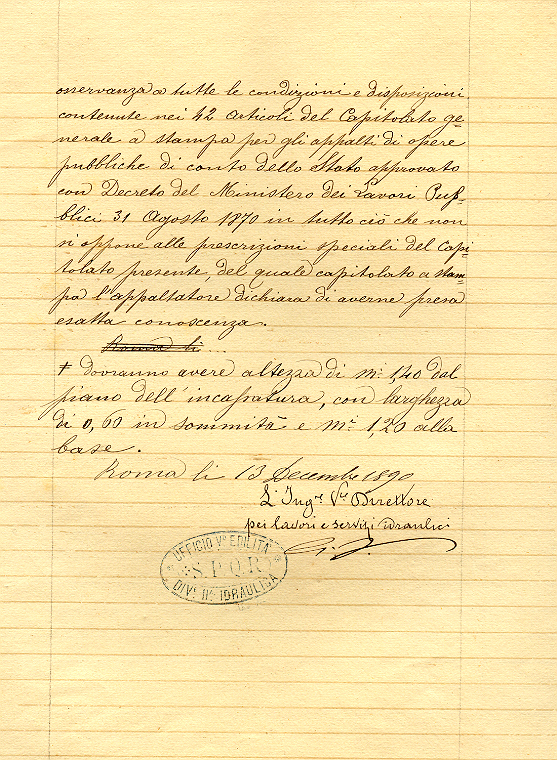 osservanza a tutte le condizioni e disposizioni
contenute nei 42 articoli del Capitolato ge-
nerale a stampa per gli appalti di opere
pubbliche di conto dello Stato approvato
con Decreto del Ministero dei Lavori Pub-
blici 31 Agosto 1870 in tutto ciò che non
si oppone alle prescrizioni speciali del Capi
tolato presente, del quale capitolato a stam
pa l'appaltatore dichiara di averne presa
esatta conoscenza.
Roma li
+ dovranno avere altezza di m. 1,40 dal
piano dell'incassatura, con larghezza
di 0,60 in sommità e m. 1,20 alla
base.
Roma li 13 Decembre 1890
L'Ingre Ve Direttore
pei lavori e servizi idraulici
UFFICIO Vº EDILITÀ
S.P.Q.R.
DIVE IIA IDRAULICA